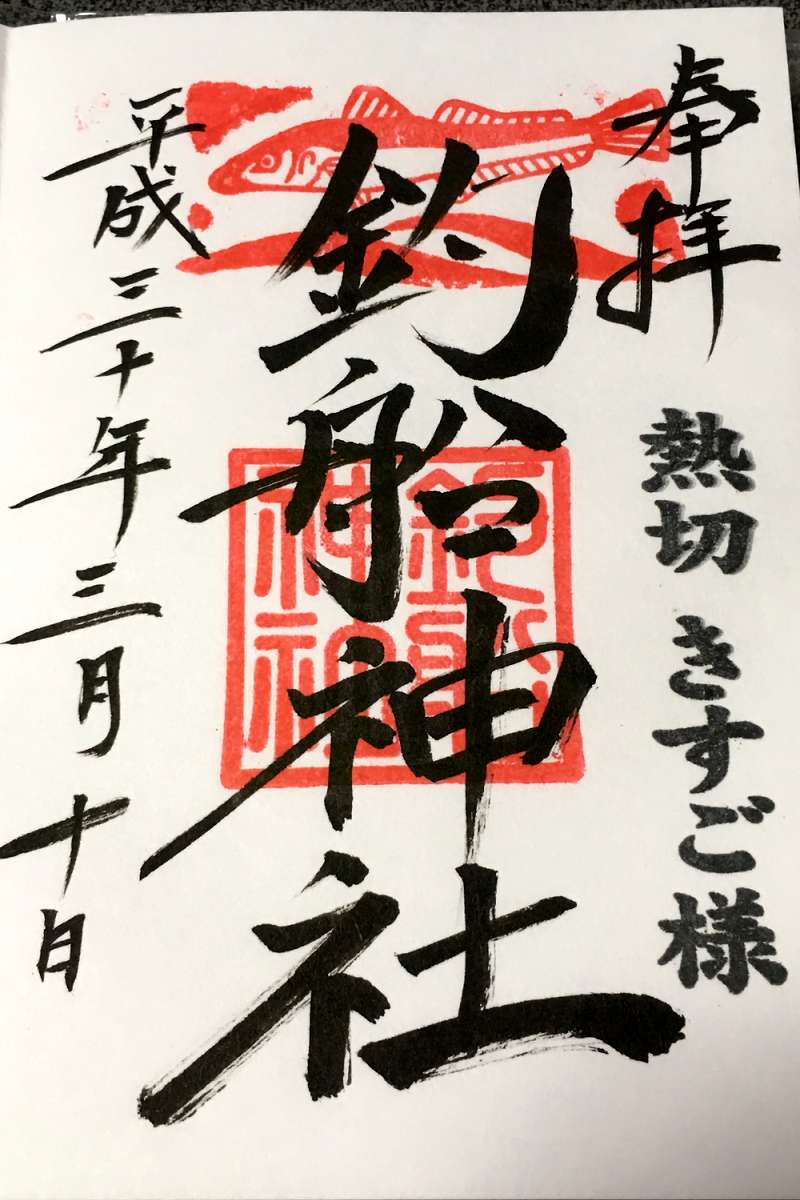 奉拝
熱切 きすご様
釣船神社
平成三十年三月十日